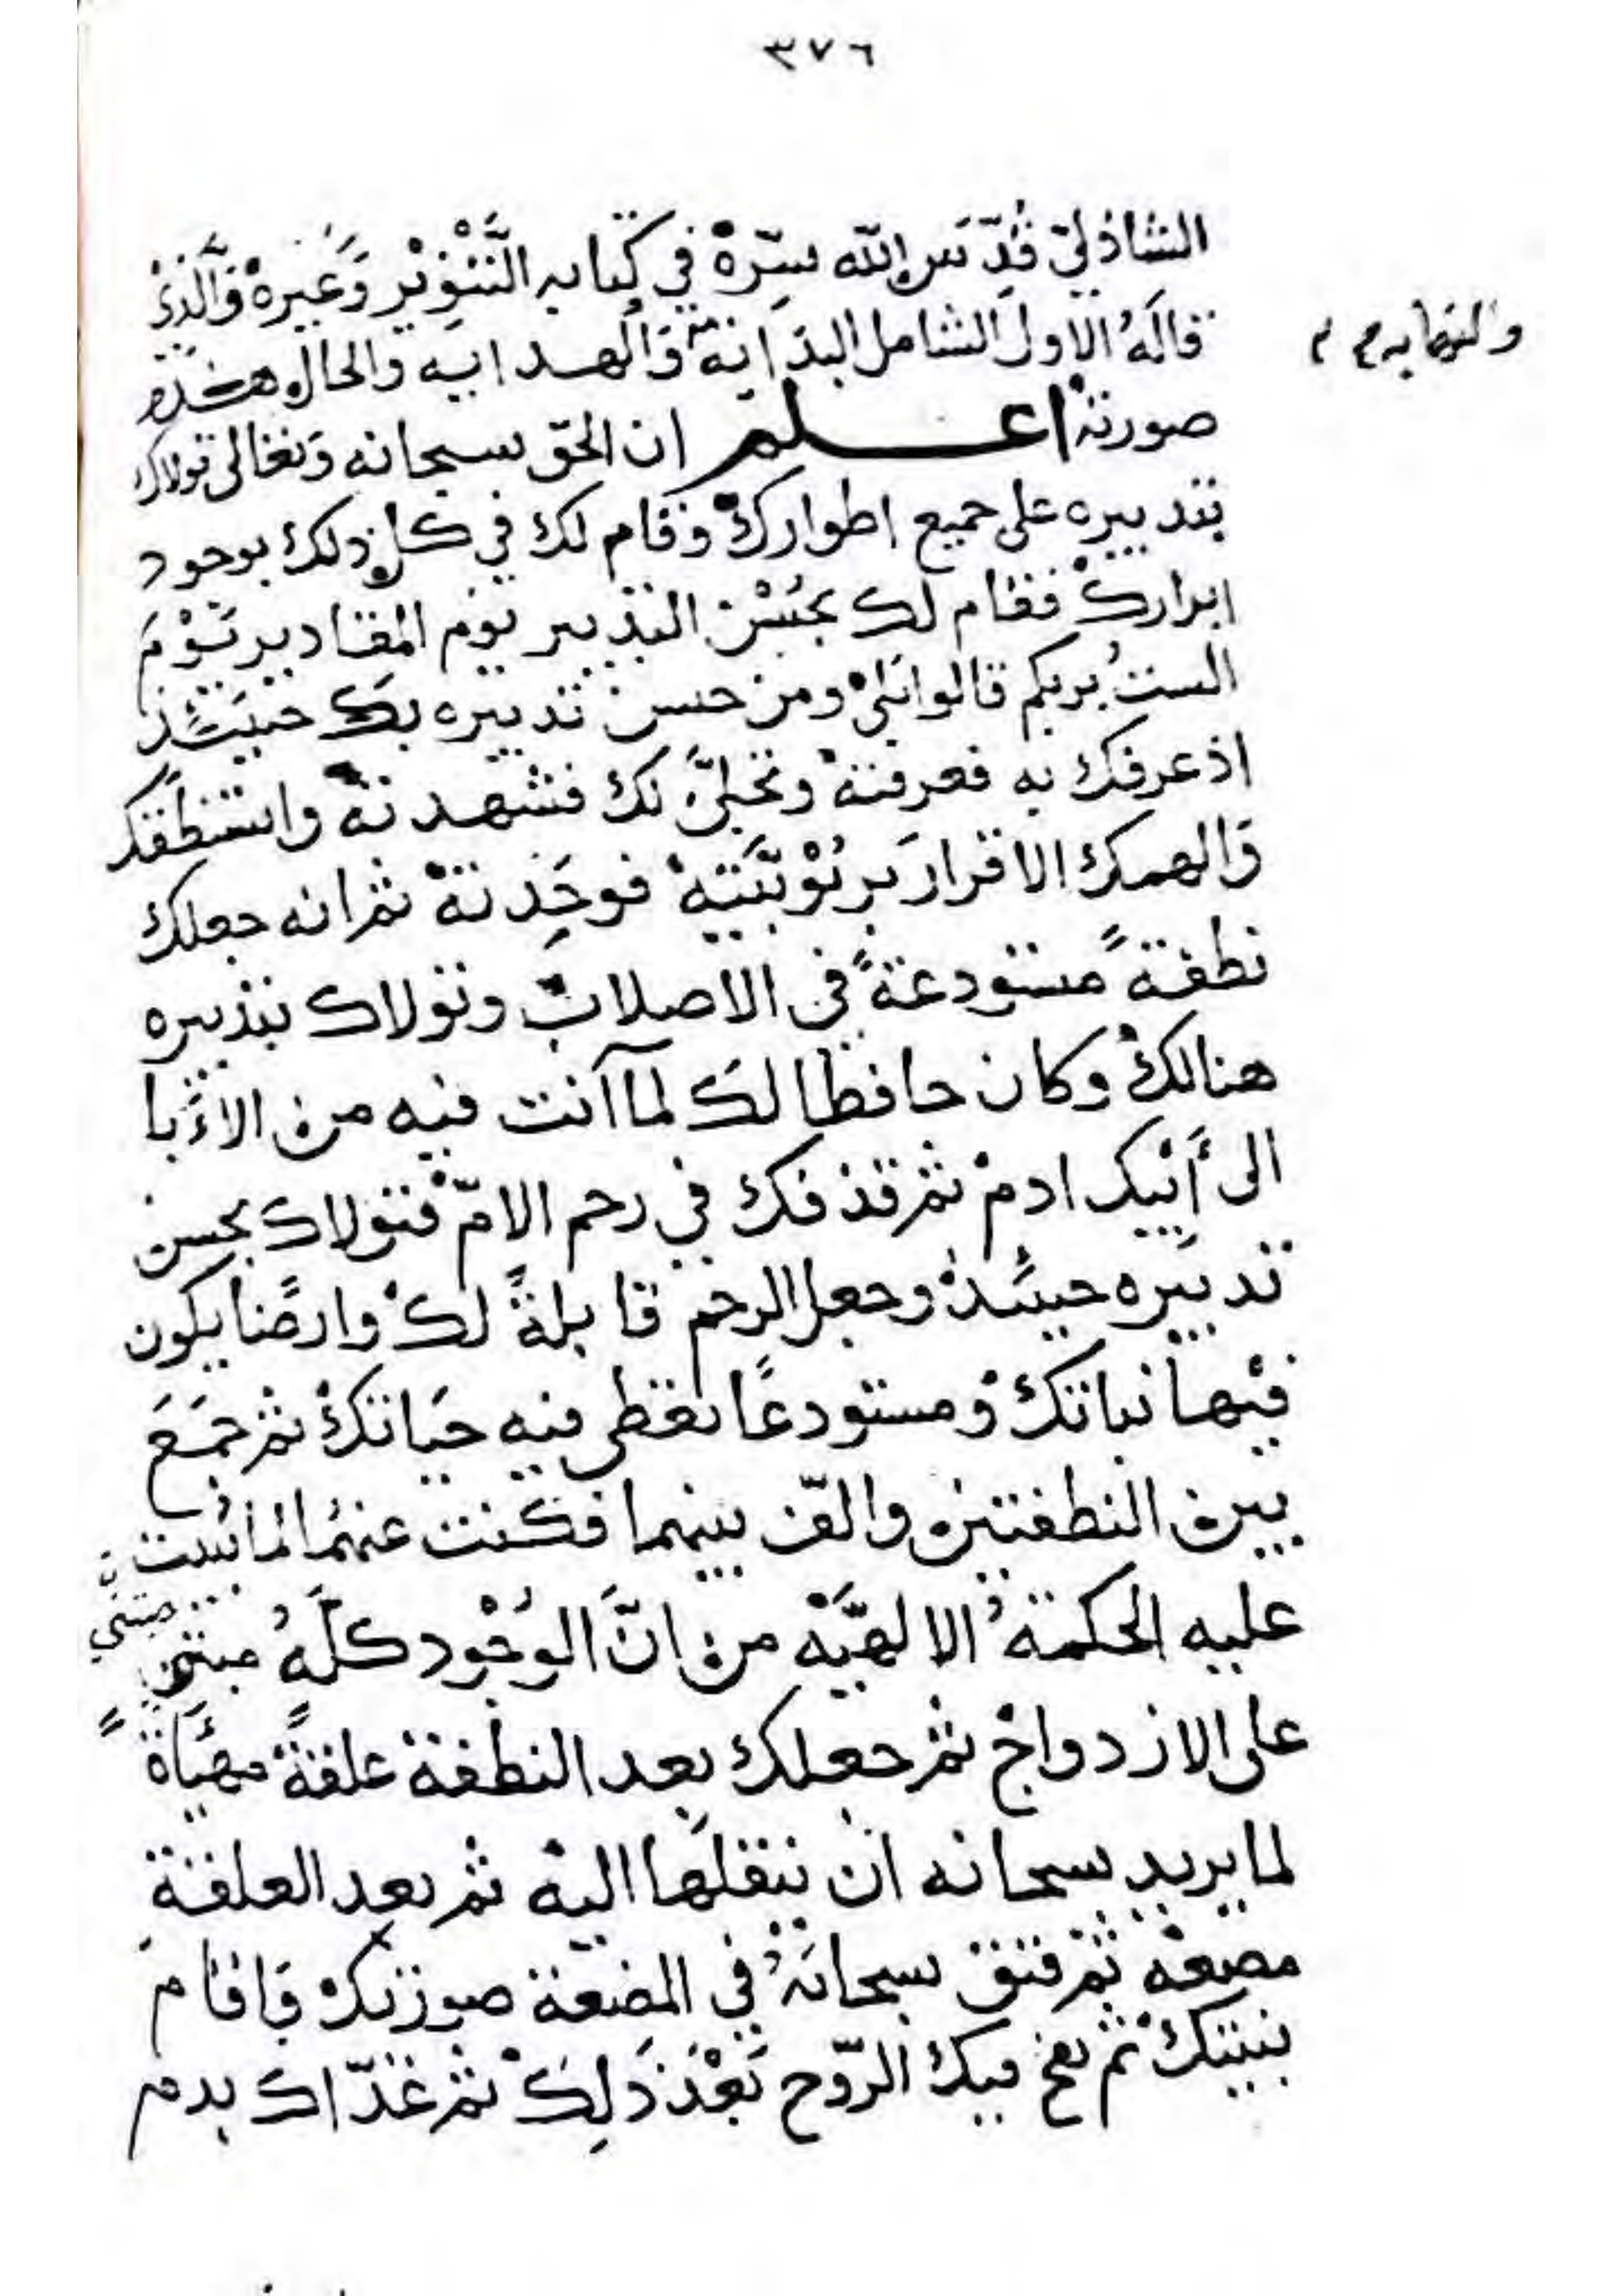 ٣٧٦
الشاذليّ قدّس الله سرّه في كتابه التنوير وغيره والّذي
قاله الاول الشامل البداية والهدايه والحال هذه
والنهايه م
صورته اعلم ان الحق سبحانه وتعالى تولاك
بتدبيره على جميع اطوارك وقام لك في كل ذلك بوجود
ابرارك فقام لك بحسن التدبير يوم المقادير يوم
الست بربكم قالوا بلى ومن حسن تدبيره بك حينئذ
اذ عرفك به فعرفته وتجلى لك فشهدته واستنطقك
والهمك الاقرار بربوبيته فوحدته ثم انه جعلك
نطفة مستودعة في الاصلاب وتولاك بتدبيره
هنالك وكان حافظا لك لما أنت فيه من الاۤبا
الى أبيك ادم ثم قذفك في رحم الامّ فتولاك بحسن
تدبيره حينئذ وجعل الرحم قابلةً لك وارضًا يكون
فيها نباتك ومستودعًا تعطى فيه حياتك ثم جمع
بين النطفتين والّف بينهما فكنت عنهما لما بنيت
عليه الحكمة الالهيّه من انّ الوجود كلّه مبني
مبني
على الازدواج ثم جعلك بعد النطفة علقةً مهيأةً
لما يريد سبحانه ان ينقلها اليه ثم بعد العلقة
مضغه ثم فتق سبحانه في المضغة صورتك واقام
بنيتك ثم نفخ فيك الرّوح بعد ذلك ثم غذّاك بدم